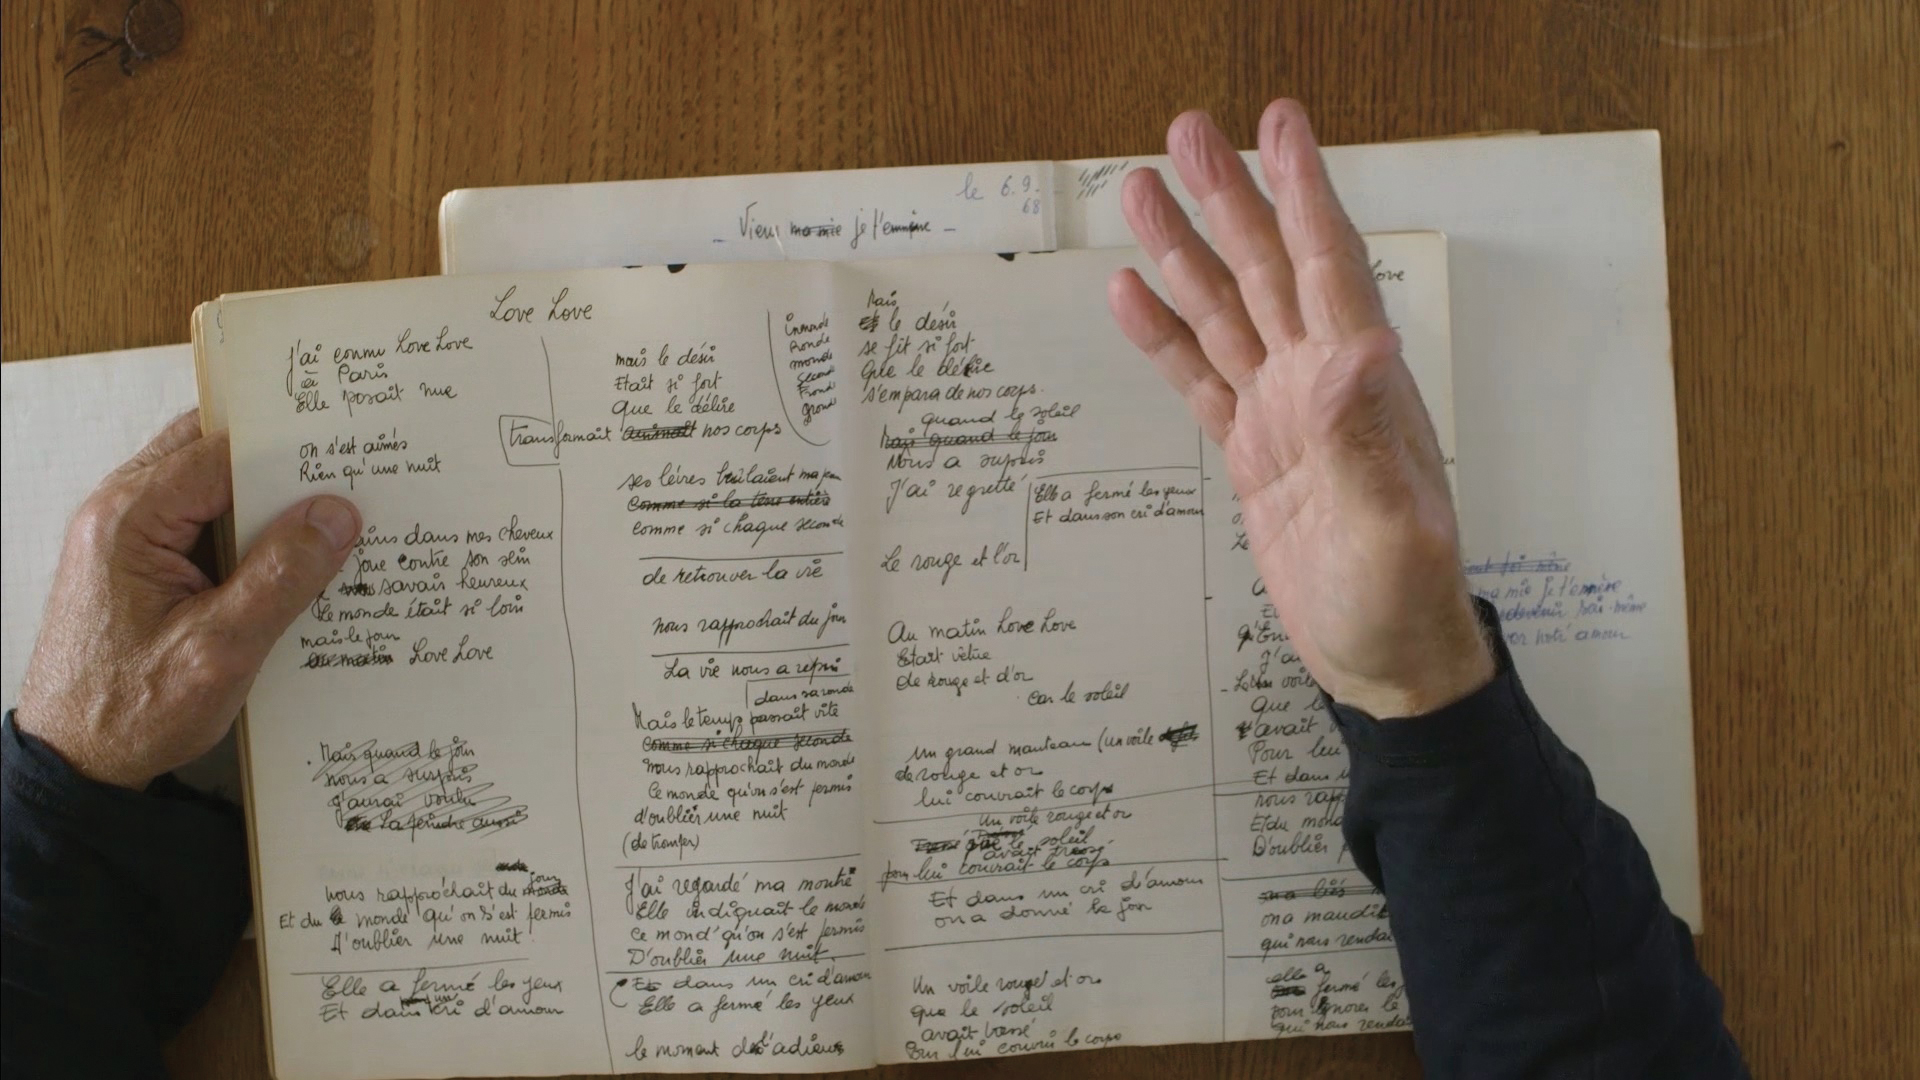 le 6.9.68
- Viens ma mie je t'emmène -
Love Love
J'ai connu Love Love
à Paris
Elle posait nue
on s'est aimés
Rien qu'une nuit
dans mes cheveux
joue contre son sein
savais heureux
Le monde était si loin
mais le jour
au matin Love Love
Mais quand le jour
nous a surpris
J'aurai voulu
La peindre aussi
jour
nous rapprochait du monde
Et du monde qu'on s'est permis
D'oublier une nuit.
Elle a fermé les yeux
Et dans un cri d'amour
mais le désir
Etait si fort
Que le délire
transformait animait nos corps
ses lèvres brûlaient ma
Comme si la terre entière
comme si chaque seconde
de retrouver la vie
nous rapprochait du jour
La vie nous a repris
dans sa ronde
Mais le temps passait vite
Comme si chaque seconde
nous rapprochait du monde
Ce monde qu'on s'est permis
d'oublier une nuit
(de tromper)
J'ai regardé ma montre
Elle indiquait le monde
Ce mond' qu'on s'est permis
D'oublier une nuit.
Et dans un cri d'amour
Elle a fermé les yeux
le moment de l'adieu
immonde
Ronde
monde
seconde
gronde
Mais
Et le désir
se fit si fort
Que le délire
s'empara de nos corps.
quand le soleil
Mais quand le jour
Nous a surpris
J'ai regretté
Elle a fermé les yeux
Et dans son cri d'amour
Le rouge et l'or
Au matin Love Love
Etait vêtue
de rouge et d'or
car le soleil
un grand manteau (un voile
de rouge et or
lui couvrait le corps
Un voile rouge et or
le soleil
avait tressé
pour lui couvrait le corps
Et dans un cri d'amour
on a donné le jour
Un voile rouge et or
que le soleil
avait tressé
Pour lui couvrir le corps
ove
J'ai
voile
que le
avait
Pour lui
Et dans
nous
Et du mond
D'oublier
on a maudit
qui nous rendai
elle a
fermé les
pour ignorer le
qui nous rendai
ma mie je t'emmène
notr' amour